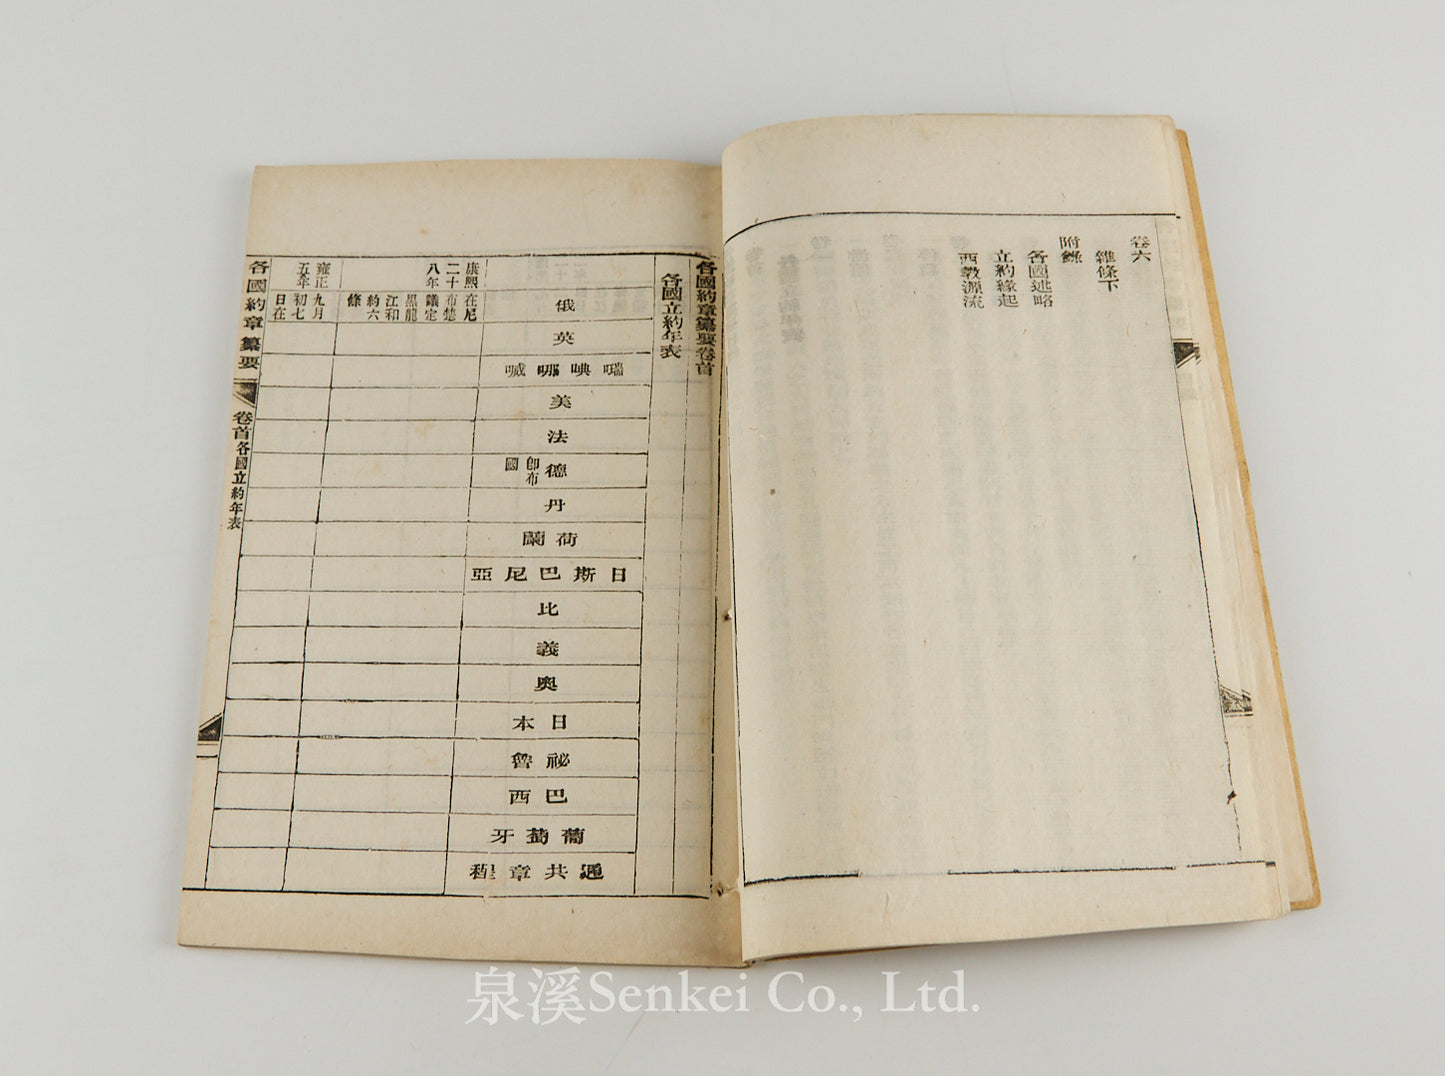 卷六
雜條下
附錄
各國述略
立約緣起
西教源流
各國約章纂要卷首
各國立約年表
俄
英
瑞㖭哪喊
美
法
德
卽布
國
丹
荷蘭
日斯巴尼亞
比
義
奧
日本
祕魯
巴西
葡萄牙
通共章程
康熙
二十
八年
在尼
布楚
議定
黑龍
江和
約六
條
雍正
五年
九月
初七
日在
各國約章纂要
卷首各國立約年表
泉溪Senkei Co., Ltd.